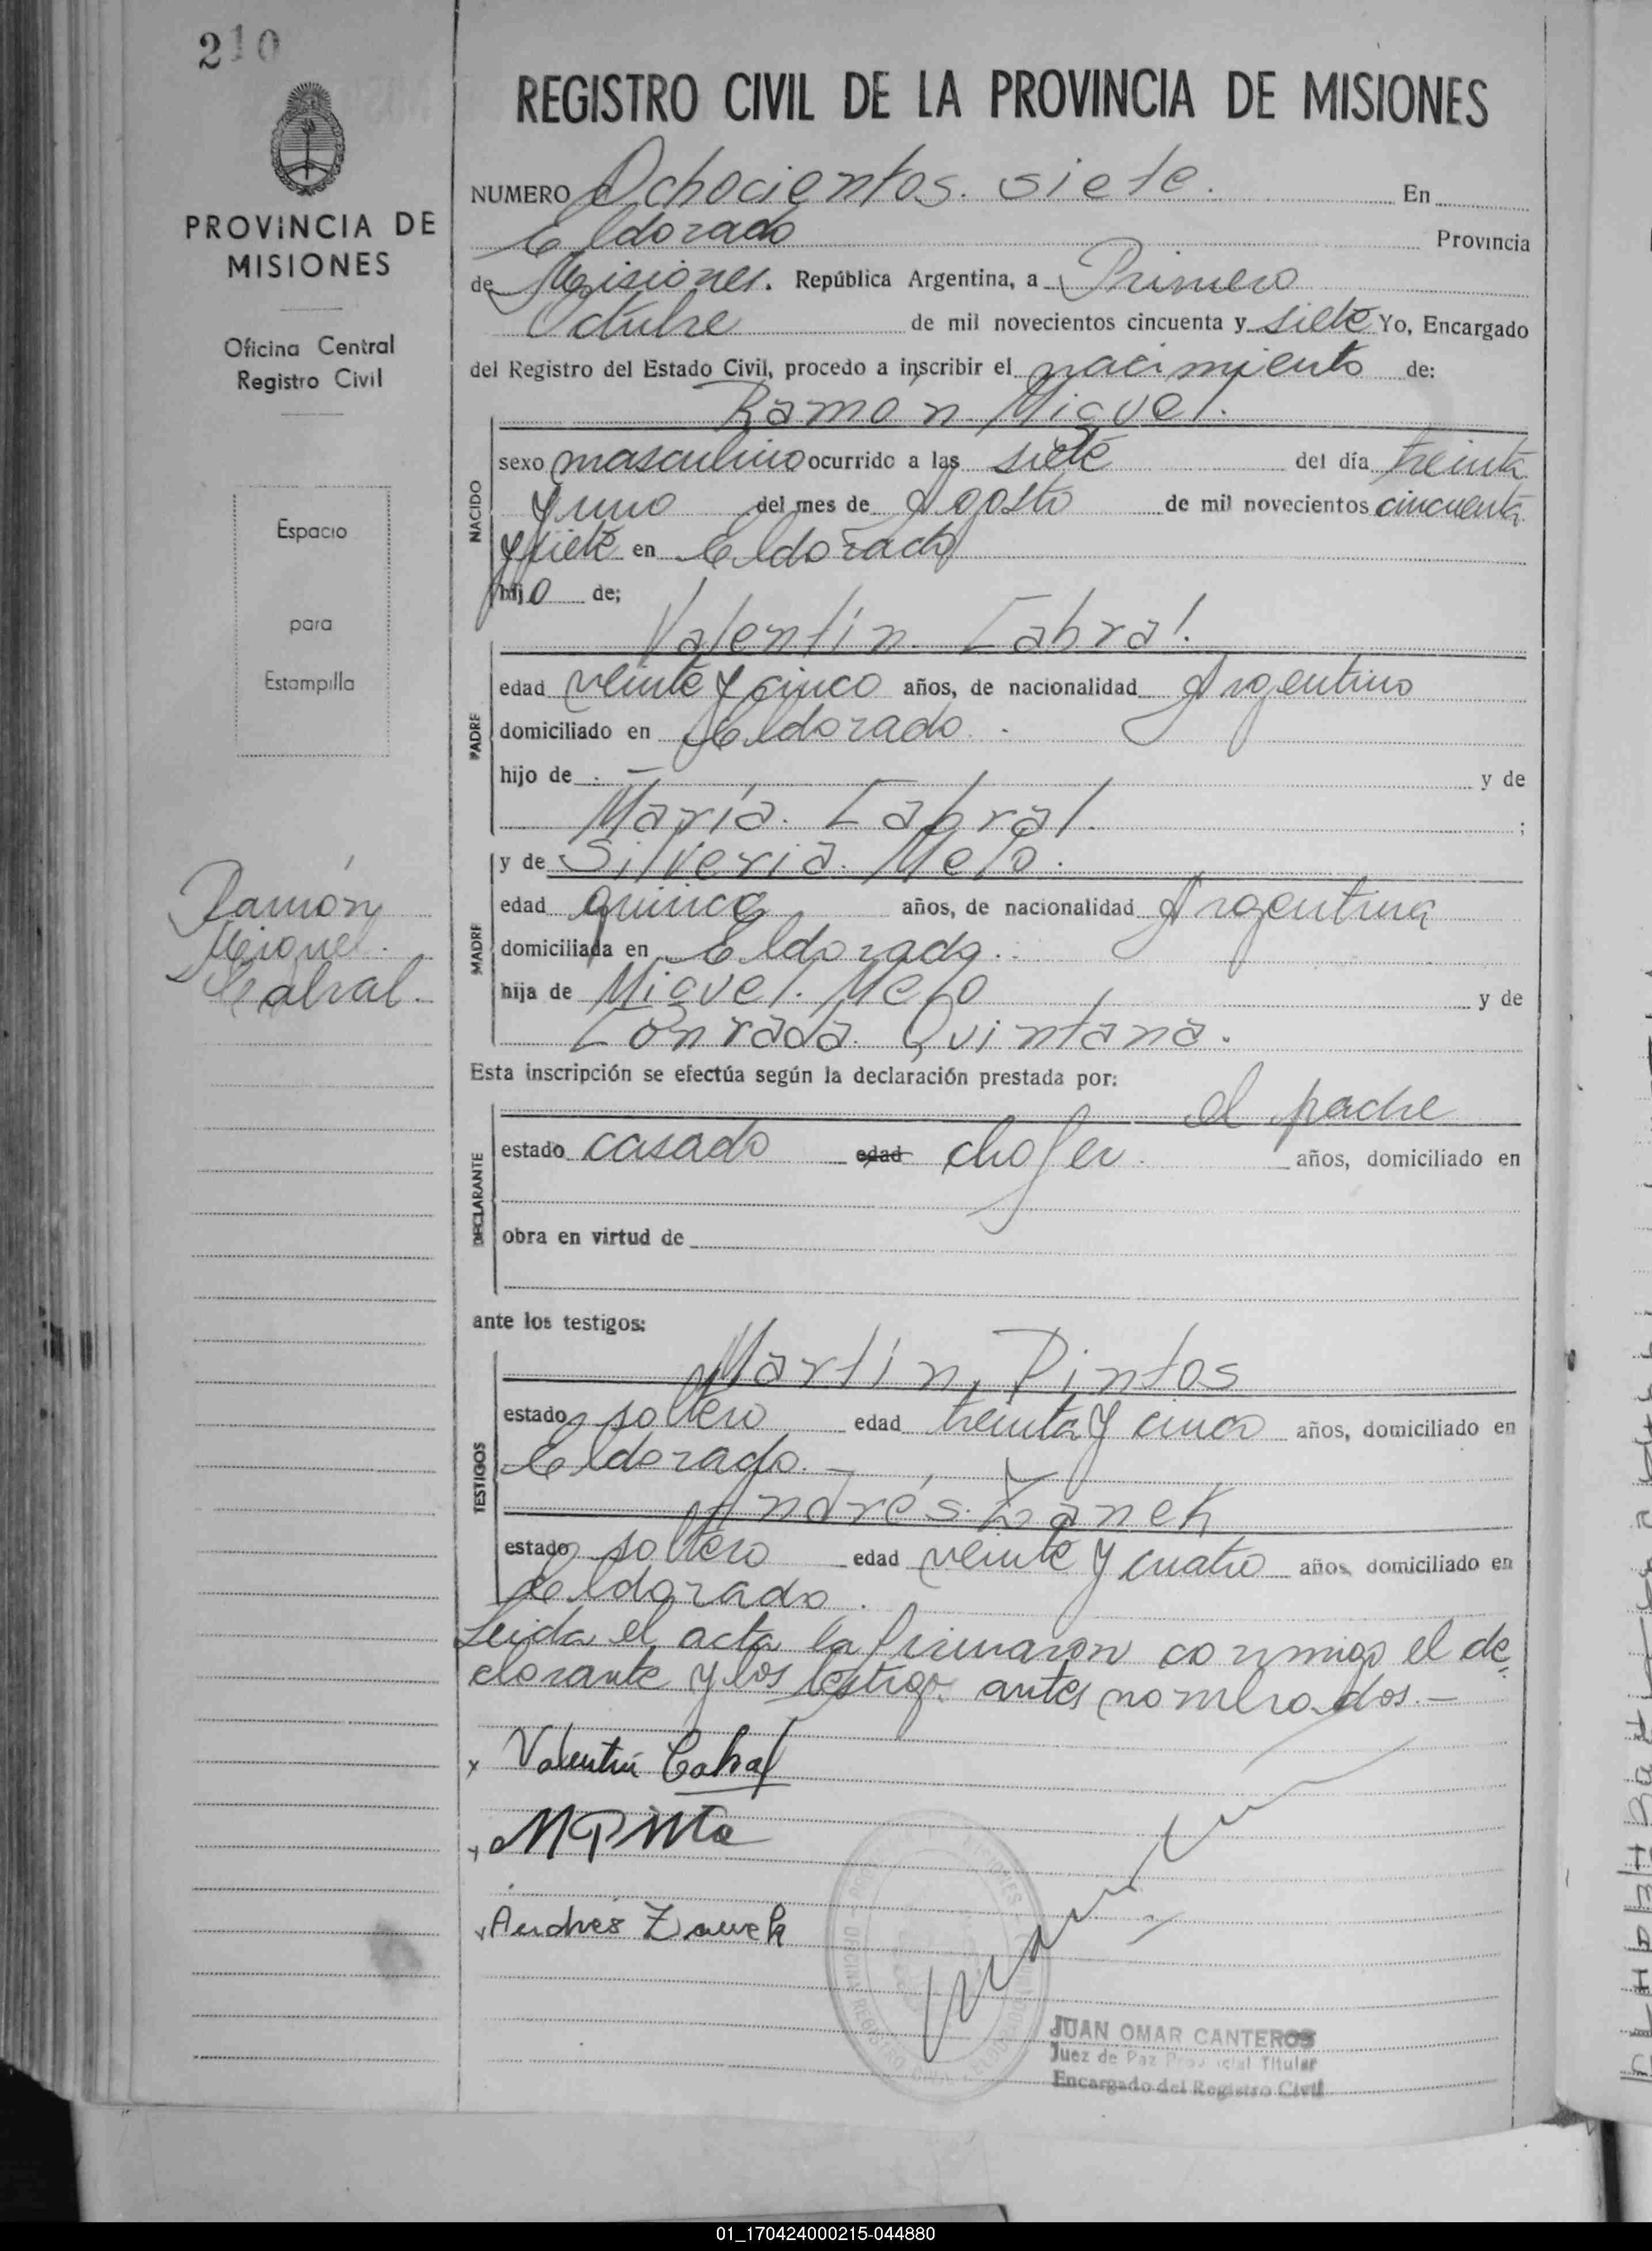 210
PROVINCIA DE
MISIONES
Oficina Central
Registro Civil
Espacio
para
Estampilla
Ramón
Miguel
Cabral.
REGISTRO CIVIL DE LA PROVINCIA DE MISIONES
NUMERO Ochocientos siete. En
Eldorado Provincia
de Misiones. República Argentina, a Primero
Octubre de mil novecientos cincuenta y siete Yo, Encargado
del Registro del Estado Civil, procedo a inscribir el nacimiento de:
Ramon Miguel.
NACIDO
sexo masculino ocurrido a las siete del día treinta
y uno del mes de Agosto de mil novecientos cincuenta
y siete en Eldorado
hijo de;
Valentín Cabral.
PADRE
edad veinte y cinco años, de nacionalidad Argentino
domiciliado en Eldorado.
hijo de . — y de
María Cabral. ;
y de Silveria Melo.
MADRE
edad quince años, de nacionalidad Argentina
domiciliada en Eldorado.
hija de Miguel Melo y de
Conrada Quintana.
Esta inscripción se efectúa según la declaración prestada por:
el padre
DECLARANTE
estado casado edad chofer. años, domiciliado en
obra en virtud de
ante los testigos:
Martín Pintos
TESTIGOS
estado soltero edad treinta y cinco años, domiciliado en
Eldorado. —
Andrés Zanek
estado soltero edad veinte y cuatro años, domiciliado en
Eldorado.
Leida el acta la firmaron conmigo el de
clarante y los testigos antes nombrados. —
x Valentín Cabral
x M Pinto
x Andrés Zanek
JUAN OMAR CANTEROS
Juez de Paz Provincial Titular
Encargado del Registro Civil
01_170424000215-044880